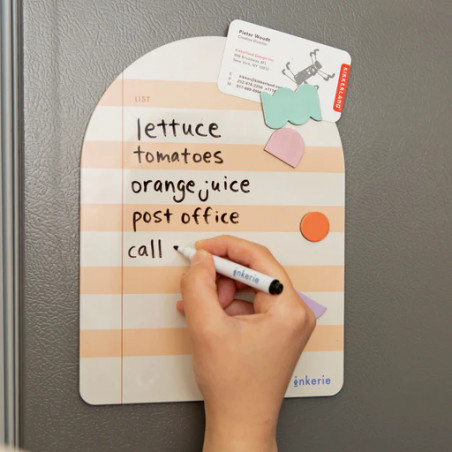 Pieter Woudt
KIKKERLAND
LIST
lettuce
tomatoes
orange juice
post office
call
inkerie
inkerie